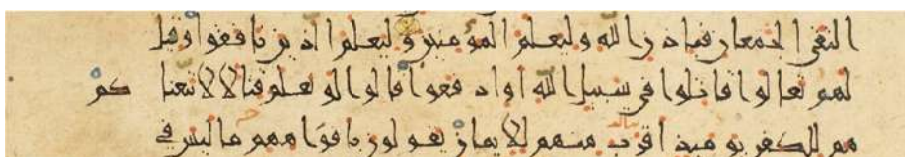 التقى الجمعان فباذن الله وليعلم المؤمنين وليعلم الذين نافقوا وقيل
لهم تعالوا قاتلوا في سبيل الله او ادفعوا قالوا لو نعلم قتالا لاتبعنا كم
هم للكفر يوميذ اقرب منهم للايمان يقولون بافوههم ما ليس في